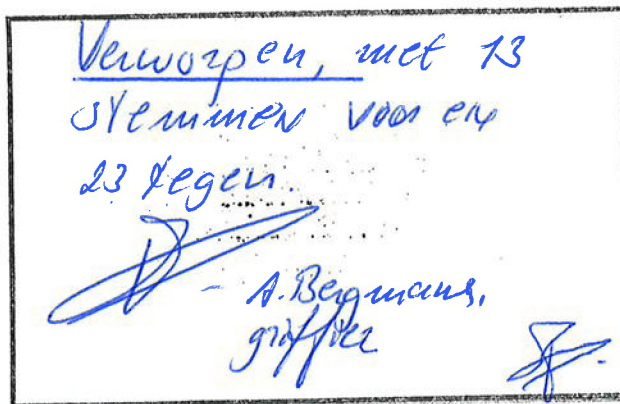 Verworpen, met 13
stemmen voor en
23 tegen.
A. Bergmans,
griffier